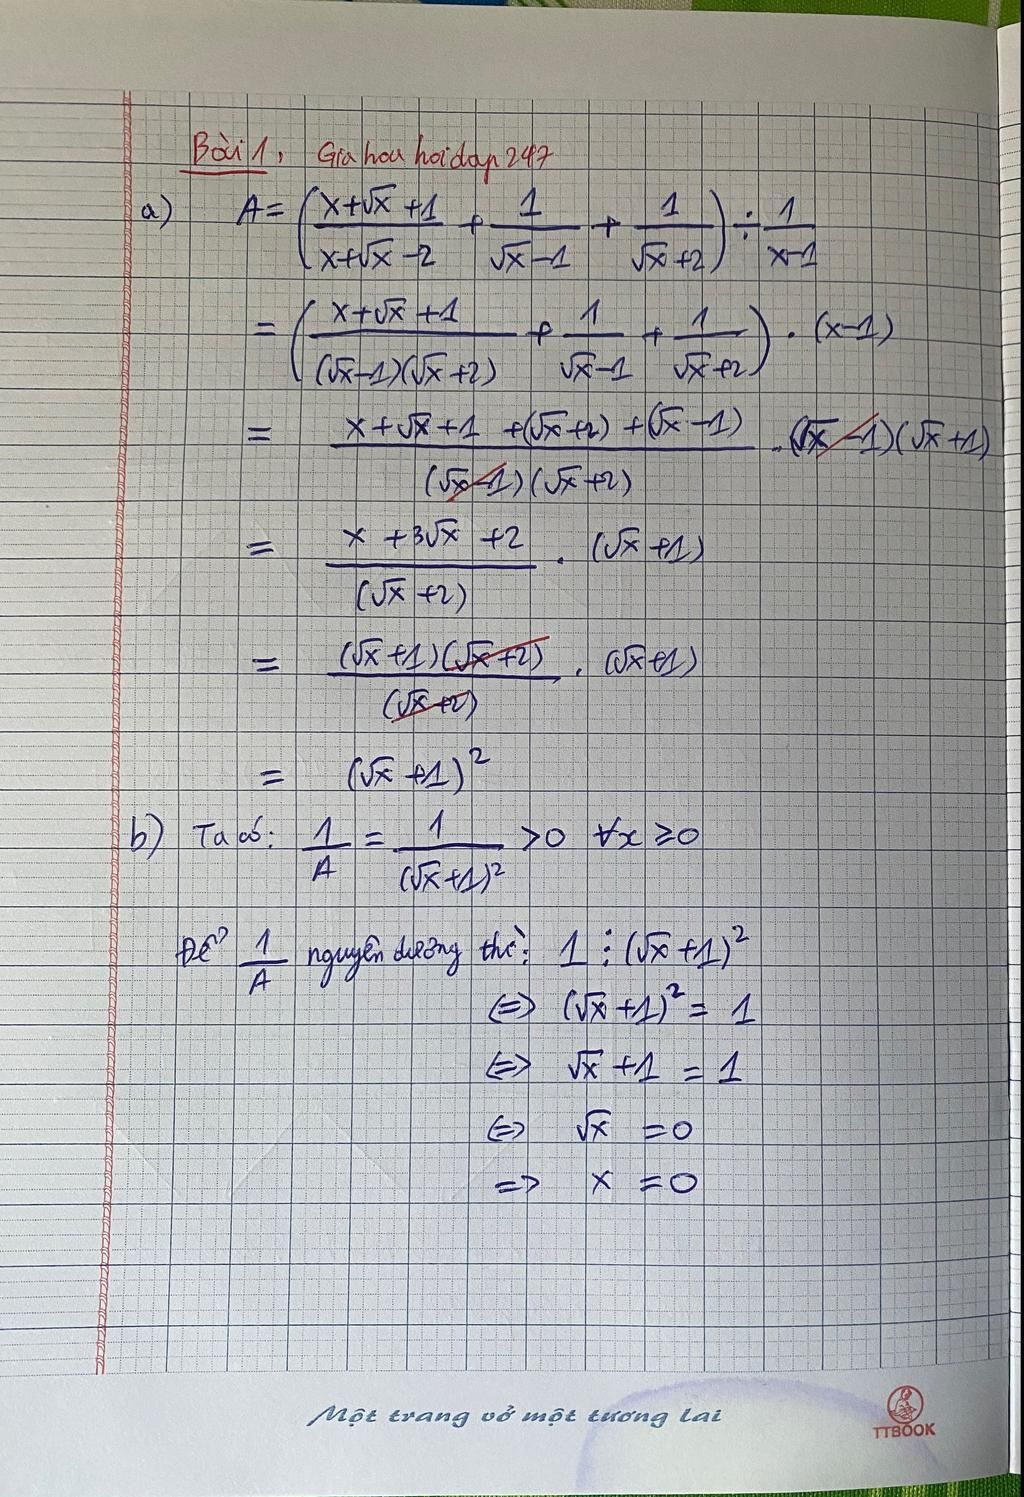 Bài 1, Gia hoa hoidap247
a) A = ((x+√x+1)/(x+√x-2) + 1/(√x-1) + 1/(√x+2)) ÷ 1/(x-1)
= ((x+√x+1)/((√x-1)(√x+2)) + 1/(√x-1) + 1/(√x+2)) . (x-1)
= (x+√x+1+(√x+2)+(√x-1))/((√x-1)(√x+2)) . (√x-1)(√x+1)
= (x+3√x+2)/(√x+2) . (√x+1)
= ((√x+1)(√x+2))/(√x+2) . (√x+1)
= (√x+1)²
b) Ta có: 1/A = 1/(√x+1)² >0 ∀x ≥0
Để 1/A nguyên dương thì: 1 ⋮ (√x+1)²
<=> (√x+1)² = 1
<=> √x+1 = 1
<=> √x = 0
=> x = 0
Một trang vở một tương lai
TTBOOK